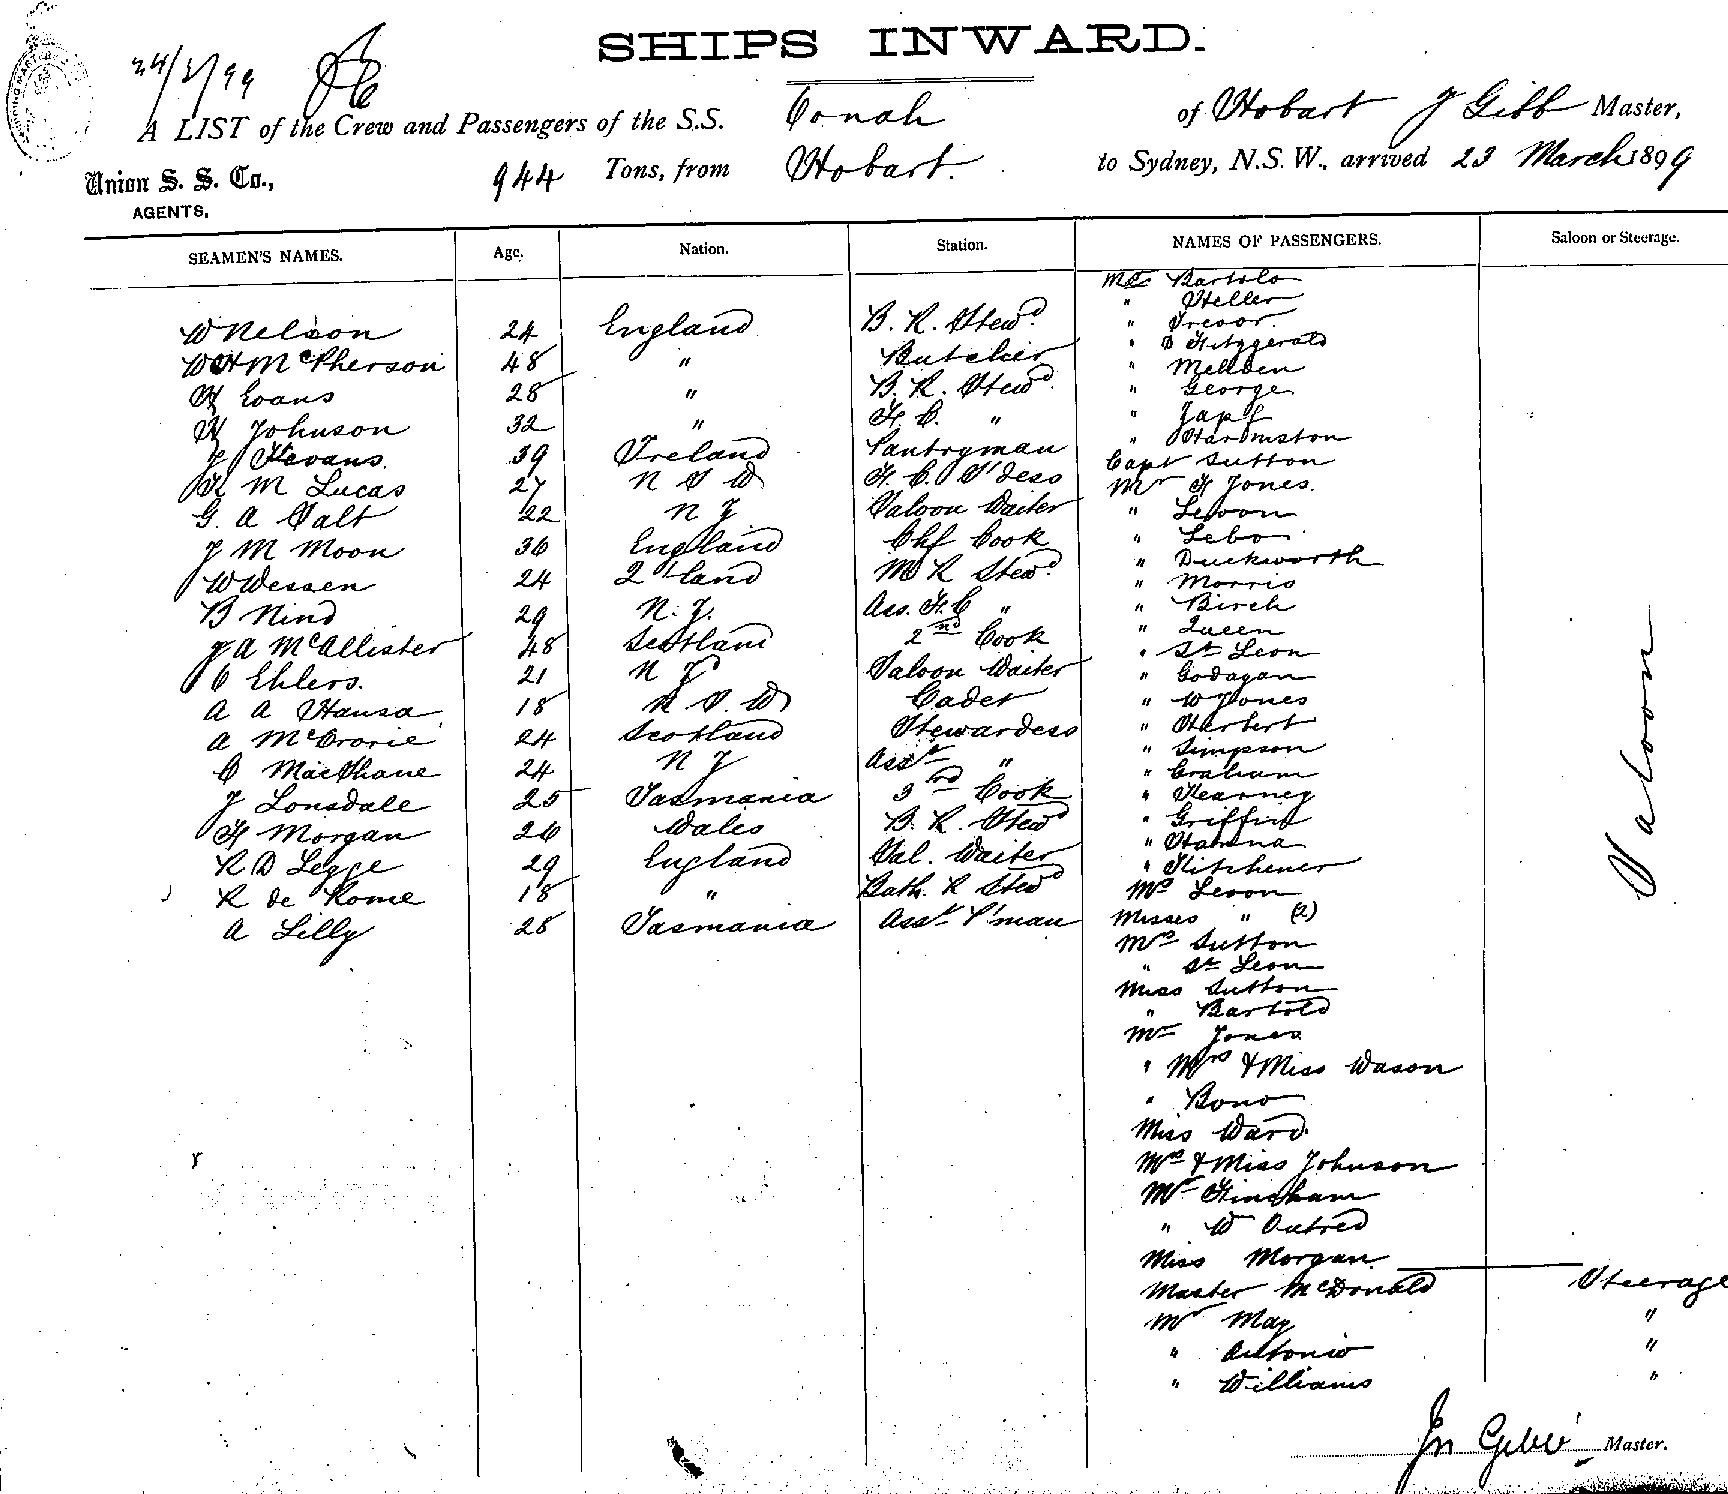 SHIPS INWARD.
24/3/99
A LIST of the Crew and Passengers of the S.S. Oonah of Hobart J Gibb Master,
Union S. S. Co., AGENTS, 944 Tons, from Hobart. to Sydney, N.S.W., arrived 23 March 1899
SEAMEN'S NAMES. Age. Nation. Station. NAMES OF PASSENGERS. Saloon or Steerage.
W Nelson 24 England B. R. Stewd
W H McPherson 48 " Butcher
H Evans 28 " B. R. Stewd
H Johnson 32 " F. C. "
J Kevans 39 Ireland Pantryman
M Lucas 27 N S W F. C. S'dess
G. A Salt 22 N Z Saloon Waiter
J M Moon 36 England Chf Cook
W Wessen 24 Q'land M R Stewd
B Nind 29 N. Z. Ass. F. C "
J A McAllister 48 Scotland 2nd Cook
C Ehlers. 21 N Z Saloon Waiter
A A Hansa 18 N. S. W Cadet
A McCrorie 24 Scotland Stewardess
C MacShane 24 N Z Asst "
J Lonsdale 25 Tasmania 3rd Cook
H Morgan 26 Wales B. R. Stewd
R D Legge 29 England Sal. Waiter
R de Rome 18 " Bath. R Stewd
A Lilly 28 Tasmania Asst P'man
Bartolo
" Heller
" Trevor.
" D Fitzgerald
"
" George
" Zapf
"
Capt Sutton
Mr F Jones.
" Levon
" Lebo
" Duckworth
" Morris
" Birch
" Queen
" St Leon
" Godagan
" W Jones
" Herbert
" Simpson
" Graham
" Kearney
" Griffin
"
" Kitchener
Mrs Levon
Misses " (2)
Mrs Sutton
" St Leon
Miss Sutton
" Bartold
Mr Jones
" Mrs & Miss Wason
" Bono
Miss Ward.
Mrs & Miss Johnson
Mr Fincham
" W Outred
Miss Morgan.
Saloon
Master McDonald Steerage
Mr May "
" Antonio "
" Williams "
Jn Gibb Master.